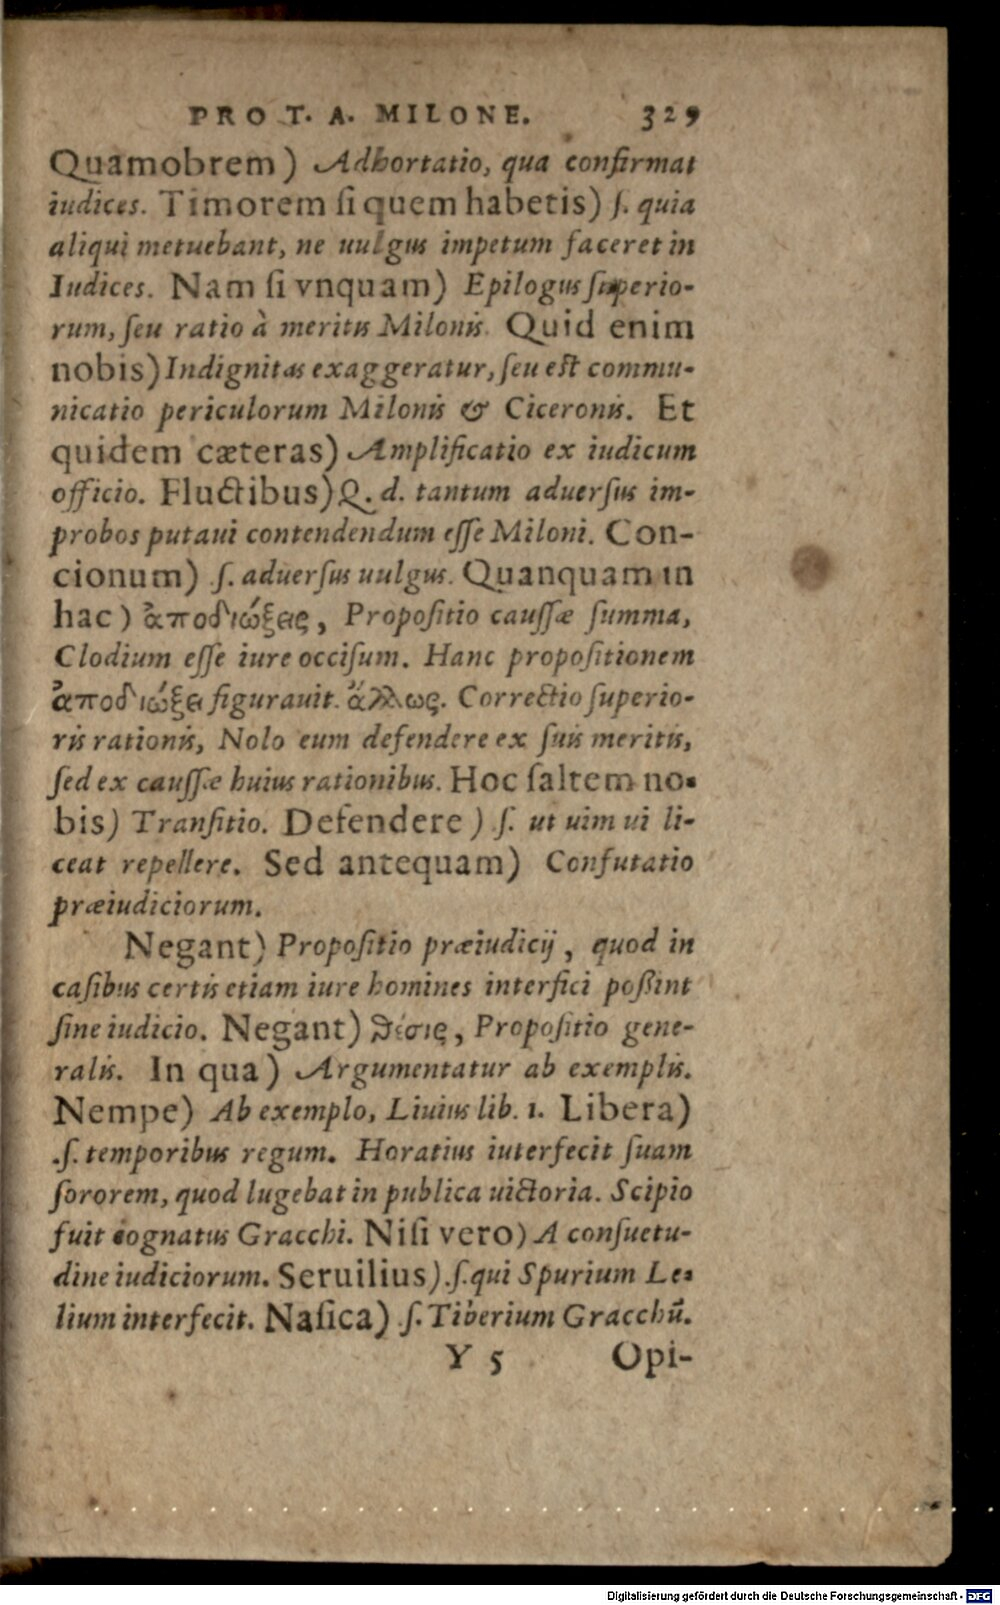 PRO T. A. MILONE. 329
Quamobrem) Adhortatio, qua confirmat
iudices. Timorem ſi quem habetis) ſ. quia
aliqui metuebant, ne uulgus impetum faceret in
Iudices. Nam ſi vnquam) Epilogus ſuperio-
rum, ſeu ratio à meritis Milonis. Quid enim
nobis) Indignitas exaggeratur, ſeu eſt commu-
nicatio periculorum Milonis & Ciceronis. Et
quidem cæteras) Amplificatio ex iudicum
officio. Fluctibus) Q. d. tantum aduerſus im-
probos putaui contendendum eſſe Miloni. Con-
cionum) ſ. aduerſus uulgus. Quanquam in
hac) ἀποδιώξεις, Propoſitio cauſſæ ſumma,
Clodium eſſe iure occiſum. Hanc propoſitionem
ἀποδιώξει figurauit. ἄλλως. Correctio ſuperio-
ris rationis, Nolo eum defendere ex ſuis meritis,
ſed ex cauſſæ huius rationibus. Hoc ſaltem no-
bis) Tranſitio. Defendere) ſ. ut uim ui li-
ceat repellere. Sed antequam) Confutatio
præiudiciorum.
Negant) Propoſitio præiudicij, quod in
caſibus certis etiam iure homines interfici poßint
ſine iudicio. Negant) θέσις, Propoſitio gene-
ralis. In qua) Argumentatur ab exemplis.
Nempe) Ab exemplo, Liuius lib. 1. Libera)
.ſ. temporibus regum. Horatius iuterfecit ſuam
ſororem, quod lugebat in publica uictoria. Scipio
fuit cognatus Gracchi. Niſi vero) A conſuetu-
dine iudiciorum. Seruilius) .ſ. qui Spurium Le-
lium interfecit. Naſica) .ſ. Tiberium Gracchū.
Y 5 Opi-
Digitalisierung gefördert durch die Deutsche Forschungsgemeinschaft - DFG